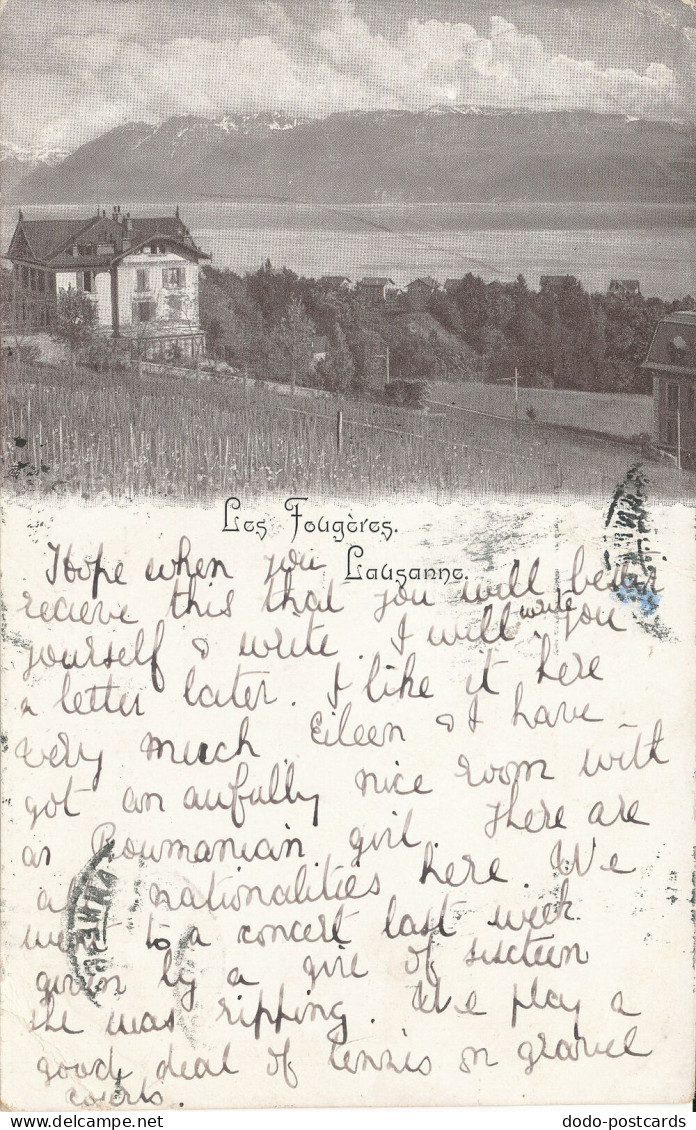 Les Fougères.
Lausanne.
Hope when you
recieve this that you will be better
yourself & write. I will write you
a letter later. I like it here
very much Eileen & I have
got an awfully nice room with
an Roumanian girl. There are
all nationalities here. We
went to a concert last week
given by a girl of sixteen
she was ripping. We play a
good deal of tennis on gravel
courts.
dodo-postcards